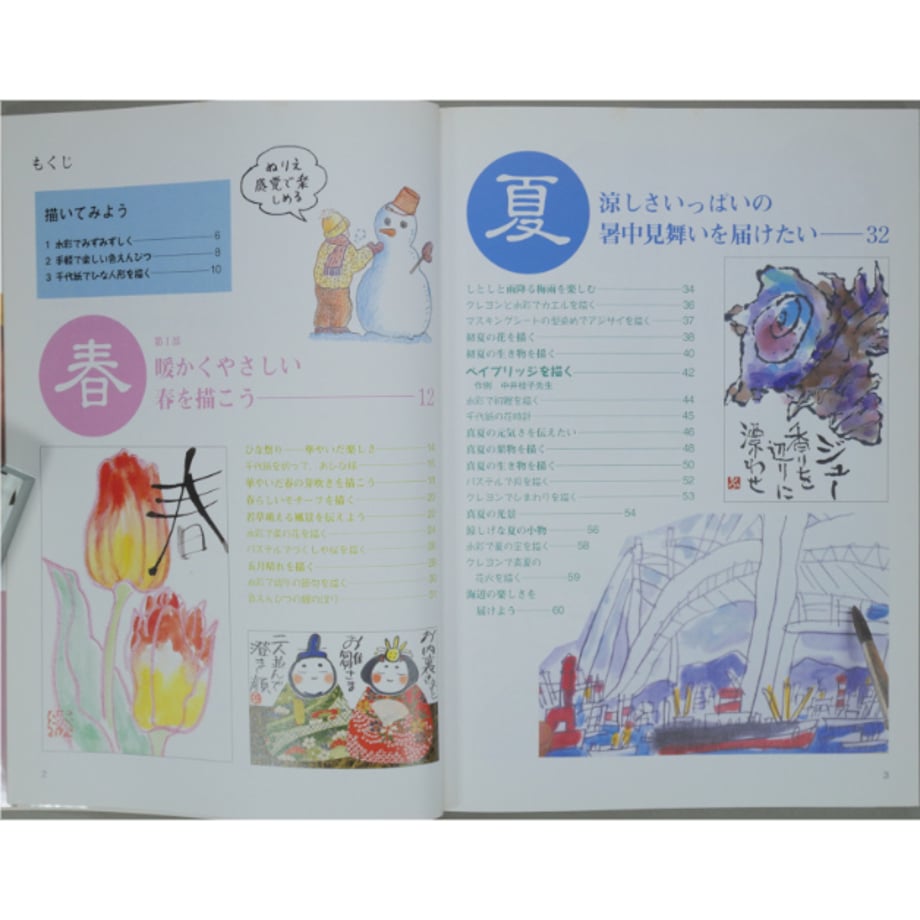 もくじ
描いてみよう
1 水彩でみずみずしく 6
2 手軽で楽しい色えんぴつ 8
3 千代紙でひな人形を描く 10
ぬりえ
感覚で楽
しめる
春
第1部
暖かくやさしい
春を描こう 12
ひな祭り──華やいだ楽しさ 14
千代紙を使って、おひな様
華やいだ春の芽吹きを描こう
春らしいモチーフを描く 20
若草萌える風景を伝えよう
水彩で菜の花を描く
パステルでつくしや桜を描く
五月晴れを描く
30
31
春
お内裏さまと
お雛さま
二人並んで
澄まし顔
2
夏
涼しさいっぱいの
暑中見舞いを届けたい 32
しとしと雨降る梅雨を楽しむ 34
クレヨンと水彩でカエルを描く 36
マスキングシートの型染めでアジサイを描く 37
初夏の花を描く 38
初夏の生き物を描く 40
ベイブリッジを描く 42
作例 中井桂子先生
水彩で初鰹を描く 44
千代紙の花時計 45
真夏の元気さを伝えたい 46
真夏の果物を描く 48
真夏の生き物を描く 50
パステルで貝を描く 52
クレヨンでひまわりを描く 53
真夏の光景 54
涼しげな夏の小物 56
水彩で夏の空を描く 58
クレヨンで真夏の
花火を描く 59
海辺の楽しさを
届けよう 60
ジュー
香りを
辺りに
漂わせ
3